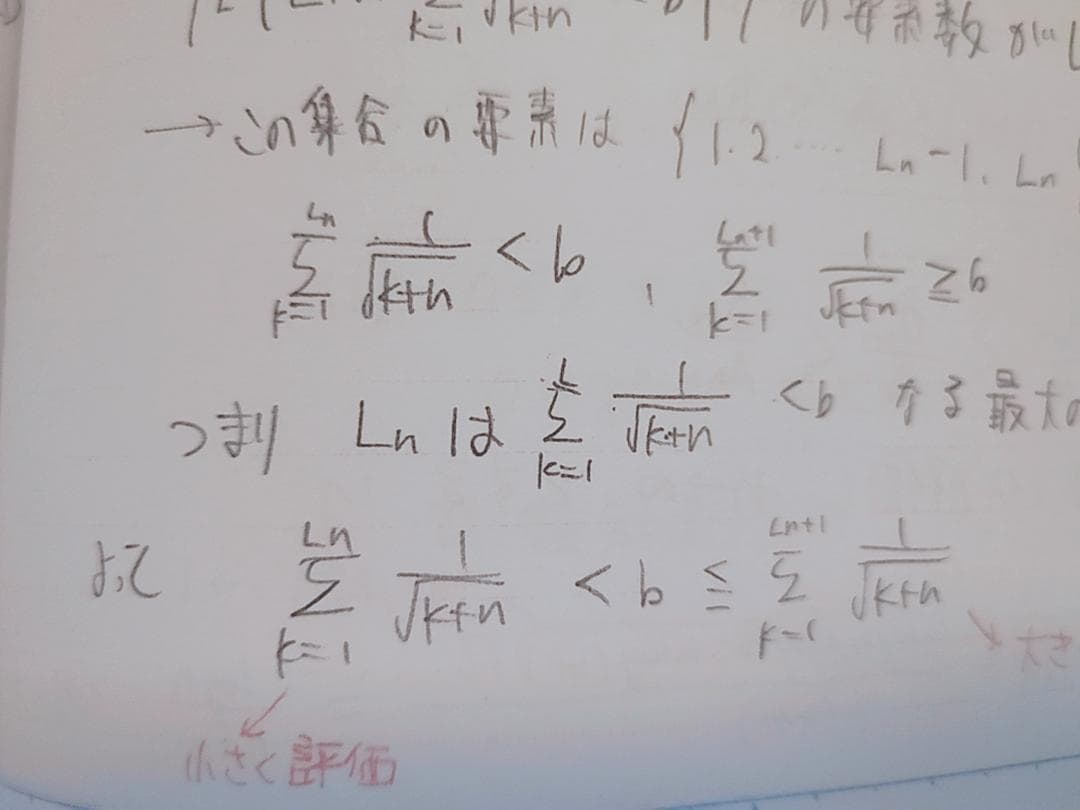 Σ k=1 √k+n b の要素数が L
→ この集合の要素は { 1. 2 ····· Ln-1, Ln
Σ_{k=1}^{Ln} 1/√(k+n) < b , Σ_{k=1}^{Ln+1} 1/√(k+n) ≧ b
つまり Ln は Σ_{k=1}^{L} 1/√(k+n) < b なる 最大の
よって Σ_{k=1}^{Ln} 1/√(k+n) < b ≦ Σ_{k=1}^{Ln+1} 1/√(k+n)
大き
小さく評価